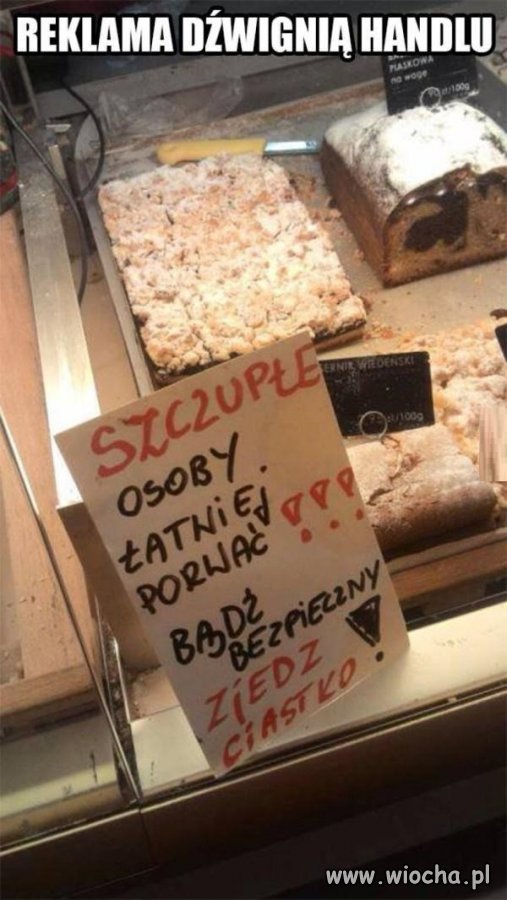 REKLAMA DŹWIGNIĄ HANDLU
PIASKOWA
na wagę
/100g
SERNIK WIEDEŃSKI
zł/100g
SZCZUPŁE
OSOBY
ŁATNIEJ
PORWAĆ !!!
BĄDŹ
BEZPIECZNY
ZJEDZ
CIASTKO !
www.wiocha.pl